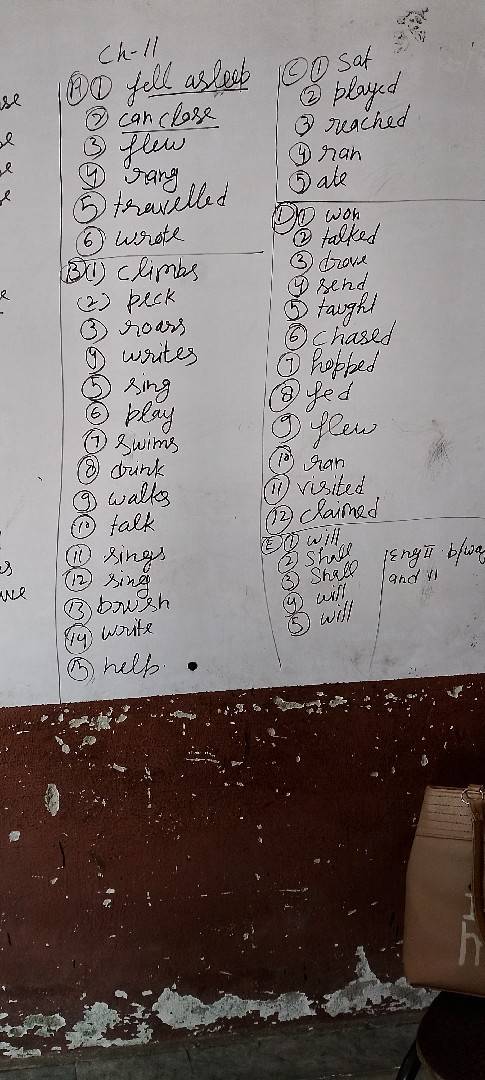 Ch-11
(A) (1) fell asleep
(2) can close
(3) flew
(4) rang
(5) travelled
(6) wrote
(B) (1) climbs
(2) peck
(3) roars
(4) writes
(5) sing
(6) play
(7) swims
(8) drink
(9) walks
(10) talk
(11) sings
(12) sing
(13) brush
(14) write
(15) help
(C) (1) sat
(2) played
(3) reached
(4) ran
(5) ate
(D) (1) won
(2) talked
(3) drove
(4) send
(5) taught
(6) chased
(7) hopped
(8) fed
(9) flew
(10) ran
(11) visited
(12) claimed
(E) (1) will
(2) Shall
(3) Shall
(4) will
(5) will
Eng II
and